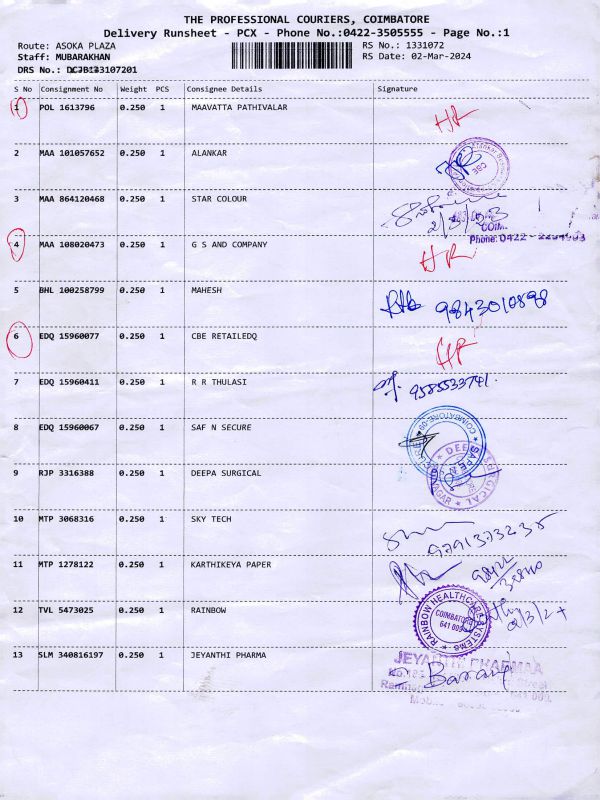 THE PROFESSIONAL COURIERS, COIMBATORE
Delivery Runsheet - PCX - Phone No.:0422-3505555 - Page No.:1
Route: ASOKA PLAZA RS No.: 1331072
Staff: MUBARAKHAN RS Date: 02-Mar-2024
DRS No.: DCJB133107201
S No Consignment No Weight PCS Consignee Details Signature
1 POL 1613796 0.250 1 MAAVATTA PATHIVALAR
2 MAA 101057652 0.250 1 ALANKAR
CBE
3 MAA 864120468 0.250 1 STAR COLOUR
Phone: 0422 -
4 MAA 108020473 0.250 1 G S AND COMPANY
5 BHL 100258799 0.250 1 MAHESH 9843010898
6 EDQ 15960077 0.250 1 CBE RETAILEDQ
7 EDQ 15960411 0.250 1 R R THULASI 9585533741.
8 EDQ 15960067 0.250 1 SAF N SECURE
9 RJP 3316388 0.250 1 DEEPA SURGICAL
10 MTP 3068316 0.250 1 SKY TECH
9791373235
11 MTP 1278122 0.250 1 KARTHIKEYA PAPER
12 TVL 5473025 0.250 1 RAINBOW
RAINBOW HEALTHCARE SYSTEMS
COIMBATORE
641 009
13 SLM 340816197 0.250 1 JEYANTHI PHARMA
JEYANTHI PHARMAA